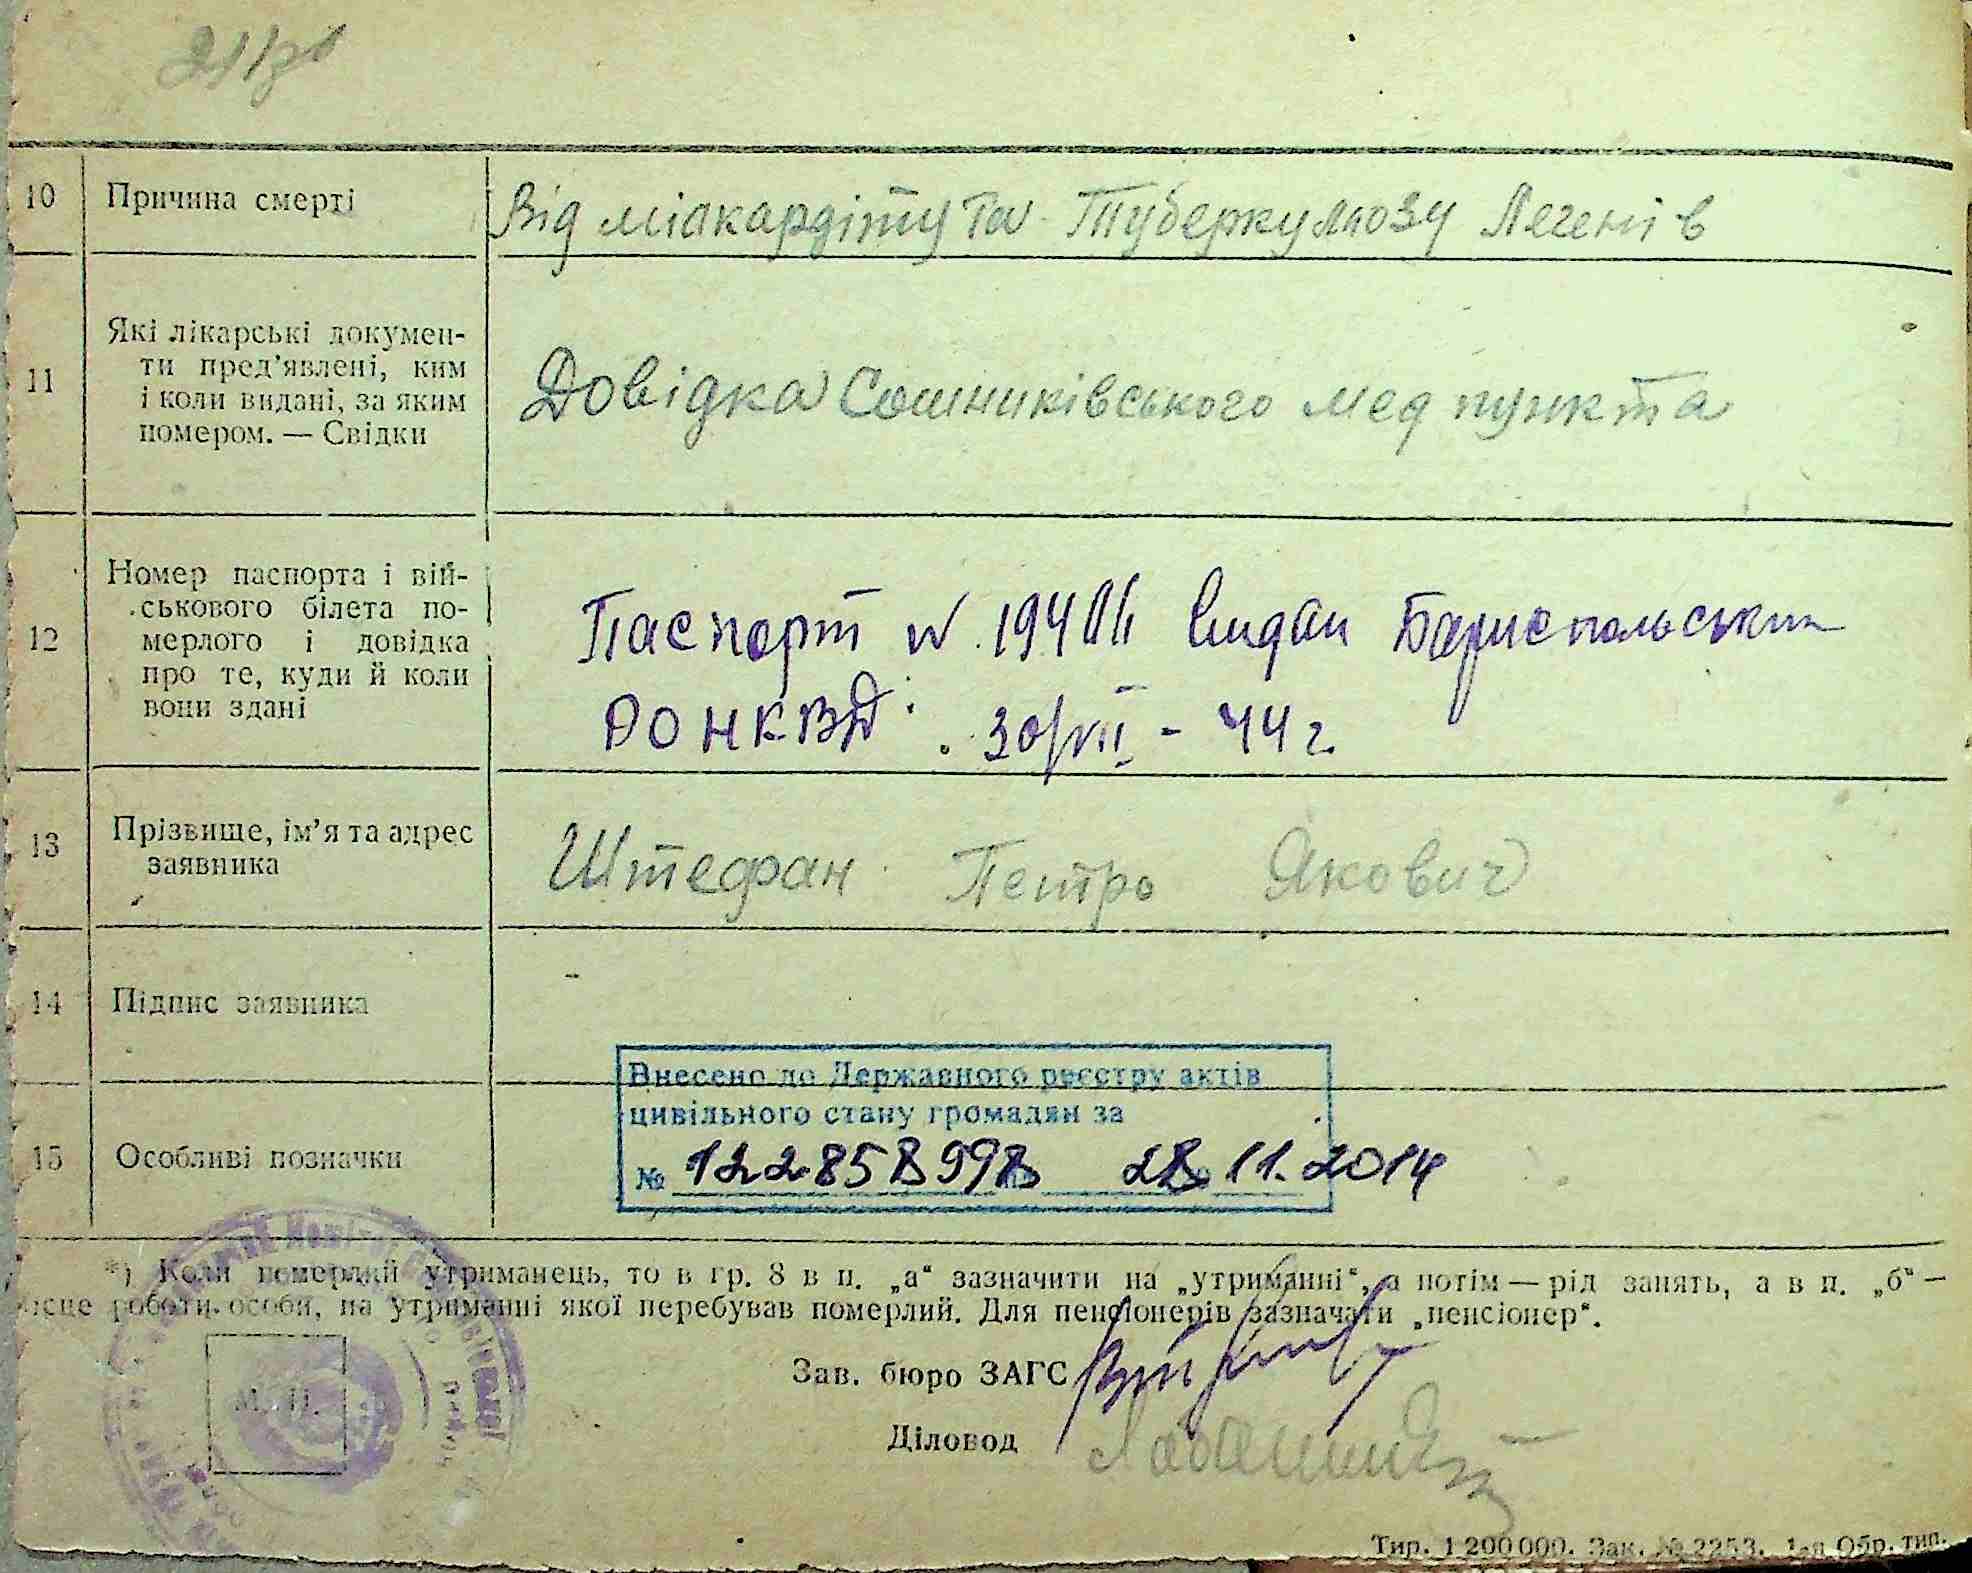 10 Причина смерті Від міакардіту та Туберкульозу Легенів
11 Які лікарські докумен-
ти пред'явлені, ким
і коли видані, за яким
номером. — Свідки
Довідка Сошниківського мед пункта
12 Номер паспорта і вій-
ськового білета по-
мерлого і довідка
про те, куди й коли
вони здані
Паспорт N видан Бариспольським
РОНКВД. 30/VII - 44 г.
13 Прізвище, ім'я та адрес
заявника
Штефан Петро Якович
14 Підпис заявника
Внесено до Державного реєстру актів
цивільного стану громадян за
№ 28.11.2014
15 Особливі позначки
*) Коли померлий утриманець, то в гр. 8 в п. „а“ зазначити на „утриманні“, а потім — рід занять, а в п. „б“ —
місце роботи особи, на утриманні якої перебував померлий. Для пенсіонерів зазначати „пенсіонер“.
М. П.
Зав. бюро ЗАГС
Діловод
Тир. 1 200 000. Зак. № 2253. 1-а Обр. тип.